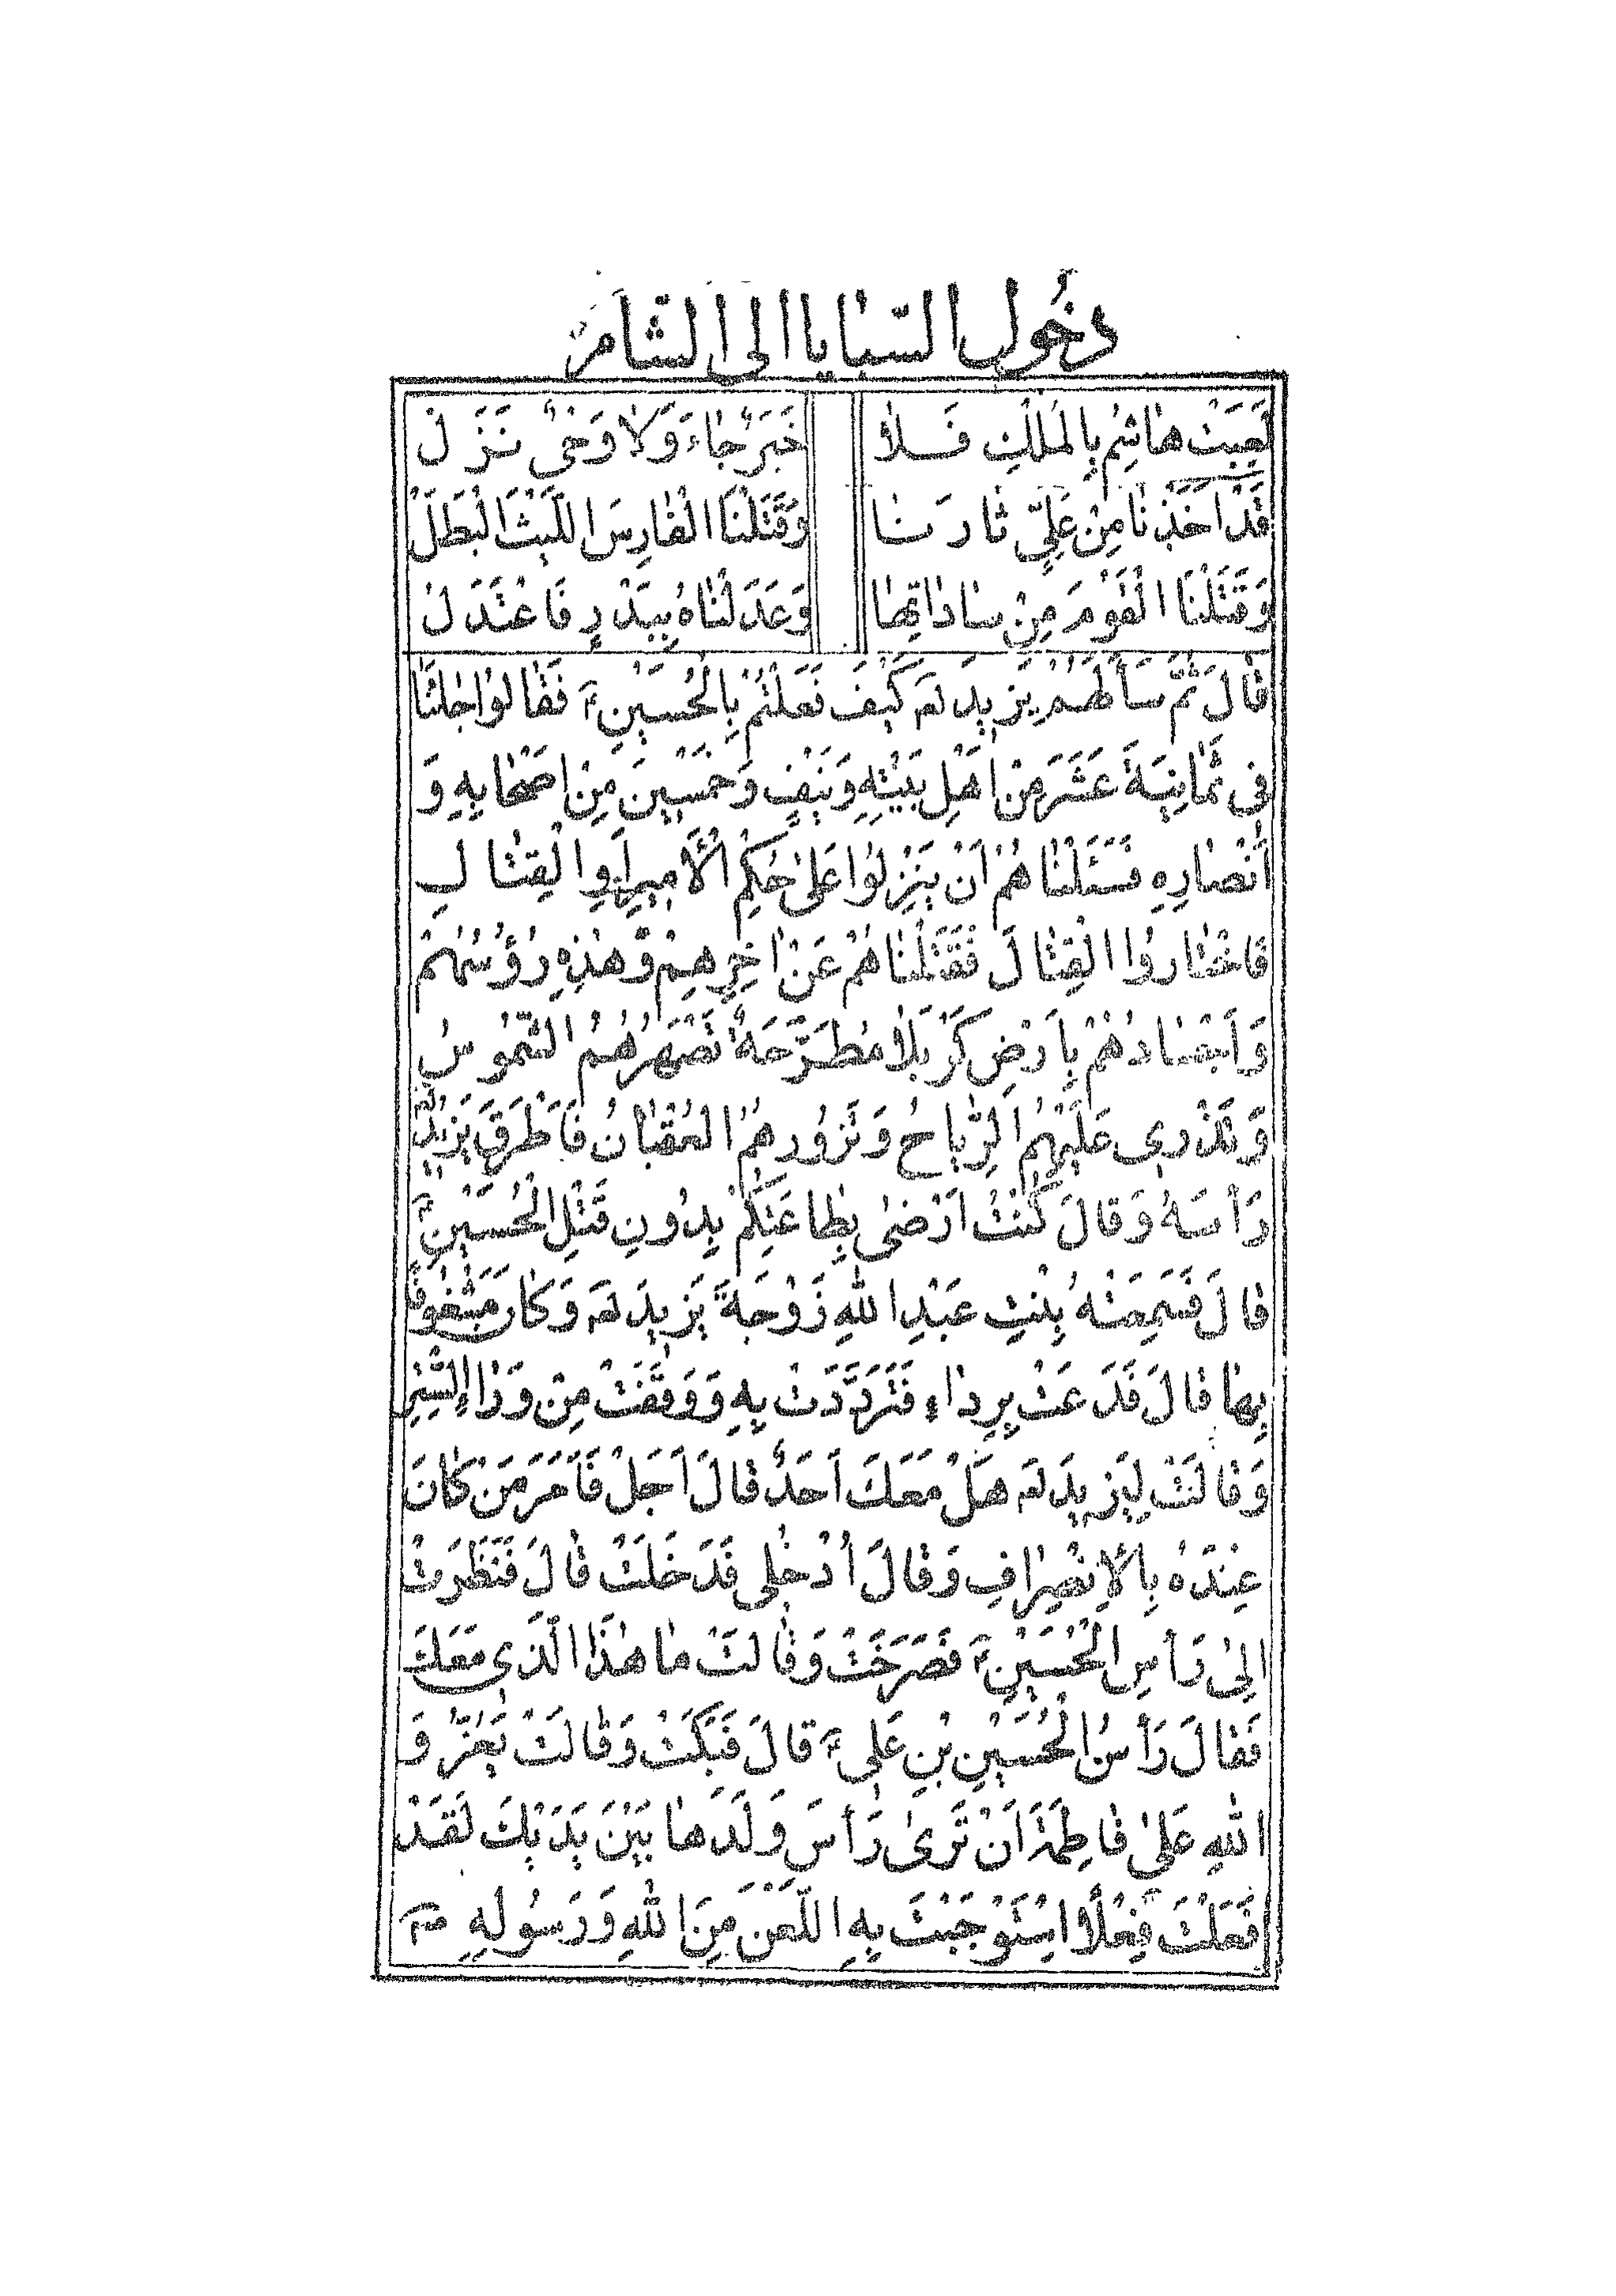 دخول السبايا الى الشام
لَعِبَتْ هاشِمُ بِالْمُلْكِ فَلا خَبَرٌ جاءَ وَلا وَحْیٌ نَزَلْ
قَدْ اَخَذْنا مِنْ عَلِيٍّ ثارَنا وَقَتَلْنَا الْفارِسَ اللَّيْثَ الْبَطَلْ
وَقَتَلْنَا الْقَوْمَ مِنْ ساداتِها وَعَدَلْناهُ بِبَدْرٍ فَاعْتَدَلْ
قالَ ثُمَّ سَأَلَهُمْ يَزيدُ لعہ كَيْفَ فَعَلْتُمْ بِالْحُسَيْنِ ع فَقالُوا جائَنا
فِى ثَمانِيَةَ عَشَرَ مِنْ اَهْلِ بَيْتِهِ وَنَيْفٍ وَخَمْسينَ مِنْ اَصْحابِهِ وَ
اَنْصارِهِ فَسَئَلْناهُمْ اَنْ يَنْزِلُوا عَلىٰ حُكْمِ الْأَميرِ اَوِ الْقِتالِ
فَاخْتارُوا الْقِتالَ فَقَتَلْناهُمْ عَنْ اٰخِرِهِمْ وَهٰذِهِ رُؤُسُهُمْ
وَاَجْسادُهُمْ بِاَرْضِ كَرْبَلا مُطَرَّحَةٌ تَصْهَرُهُمُ الشُّمُوسُ
وَتَذْرى عَلَيْهِمُ الرِّياحُ وَتَزُورُهُمُ الْعُقْبانُ فَاَطْرَقَ يَزيدُ لعہ
رَأْسَهُ وَقالَ كُنْتُ اَرْضىٰ بِطاعَتِكُمْ بِدُونِ قَتْلِ الْحُسَيْنِ ع
قالَ فَسَمِعَتْهُ بِنْتُ عَبْدِ اللهِ زَوْجَةُ يَزيدَ لعہ وَكانَ مَشْغُوفًا
بِها قالَ فَدَعَتْ بِرِداءٍ فَتَرَدَّدَتْ بِهِ وَوَقَفَتْ مِنْ وَراءِ السِّتْرِ
وَقالَتْ لِيَزيدَ لعہ هَلْ مَعَكَ اَحَدٌ قالَ اَجَلْ فَاَمَرَ مَنْ كانَ
عِنْدَهُ بِالْاِنْصِرافِ وَقالَ اُدْخُلى فَدَخَلَتْ قالَ فَنَظَرَتْ
اِلىٰ رَأْسِ الْحُسَيْنِ ع فَصَرَخَتْ وَقالَتْ ما هٰذَا الَّذى مَعَكَ
فَقالَ رَأْسُ الْحُسَيْنِ بْنِ عَلى ع قالَ فَبَكَتْ وَقالَتْ يَعُزُّ وَ
اللهِ عَلىٰ فاطِمَةَ اَنْ تَرىٰ رَأْسَ وَلَدِها بَيْنَ يَدَيْكَ لَقَدْ
فَعَلْتَ فِعْلًا اسْتَوْجَبْتَ بِهِ اللَّعْنَ مِنَ اللهِ وَرَسُولِهِ ص